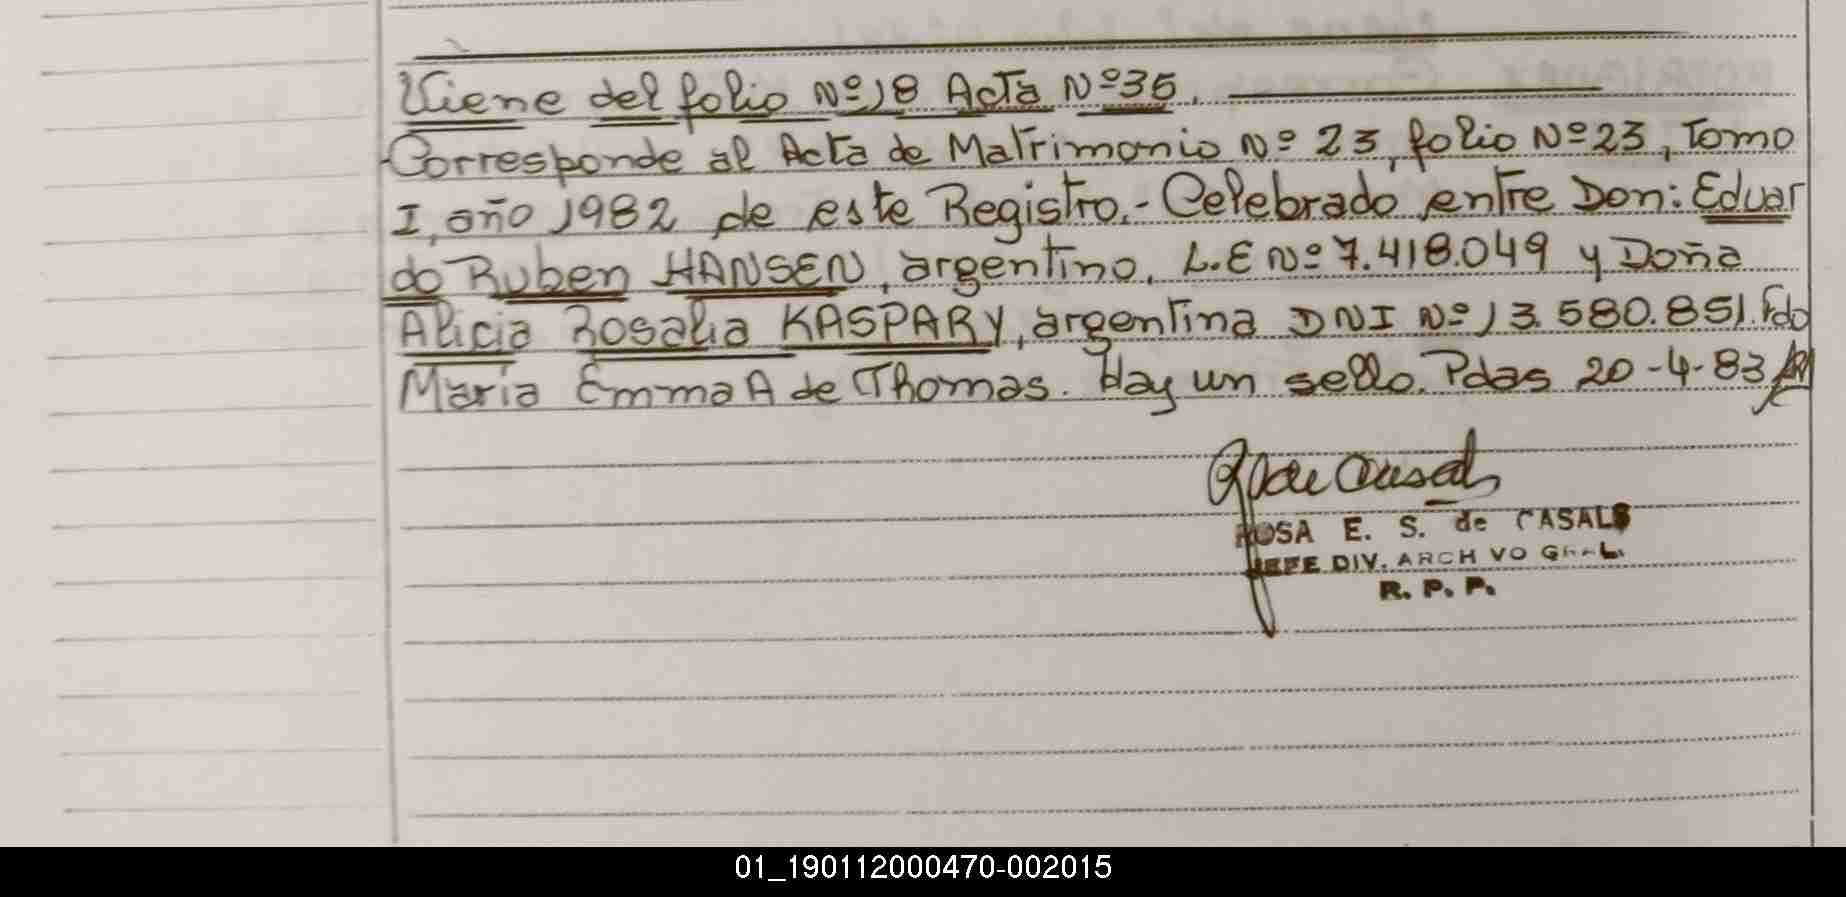 Viene del folio Nº 18 Acta Nº 36.
Corresponde al Acta de Matrimonio Nº 23, folio Nº 23, Tomo
I, año 1982 de este Registro.- Celebrado entre Don: Eduar
do Ruben HANSEN, argentino, L.E Nº 7.418.049 y Doña
Alicia Rosalia KASPARY, argentina DNI Nº 13.580.851. Fdo
Maria Emma A de Thomas. Hay un sello. Pdas 20-4-83
ROSA E. S. de CASALS
JEFE DIV. ARCHIVO GRAL.
R. P. P.
01_190112000470-002015